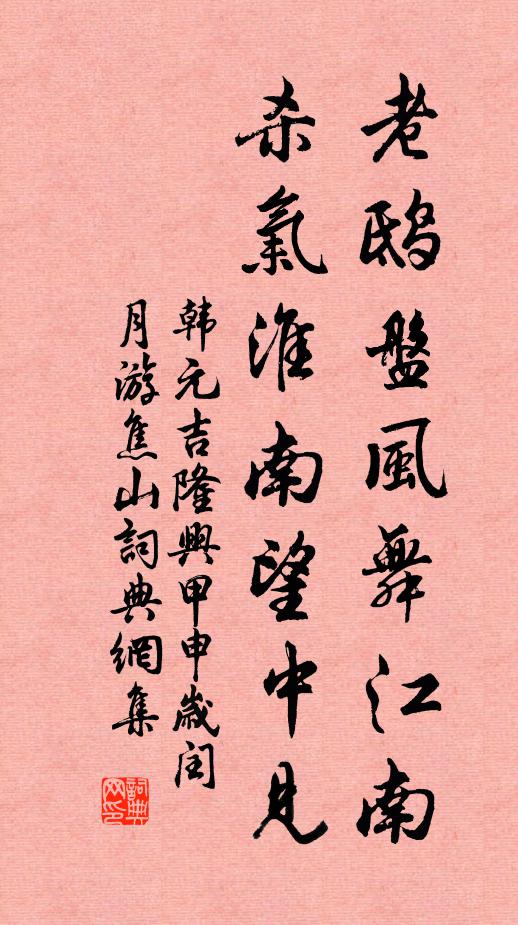 老鴟盤風舞江南
杀氣淮南望中見
韩元吉隆興甲申歲闰
月游焦山詞典網集
詞典
网印